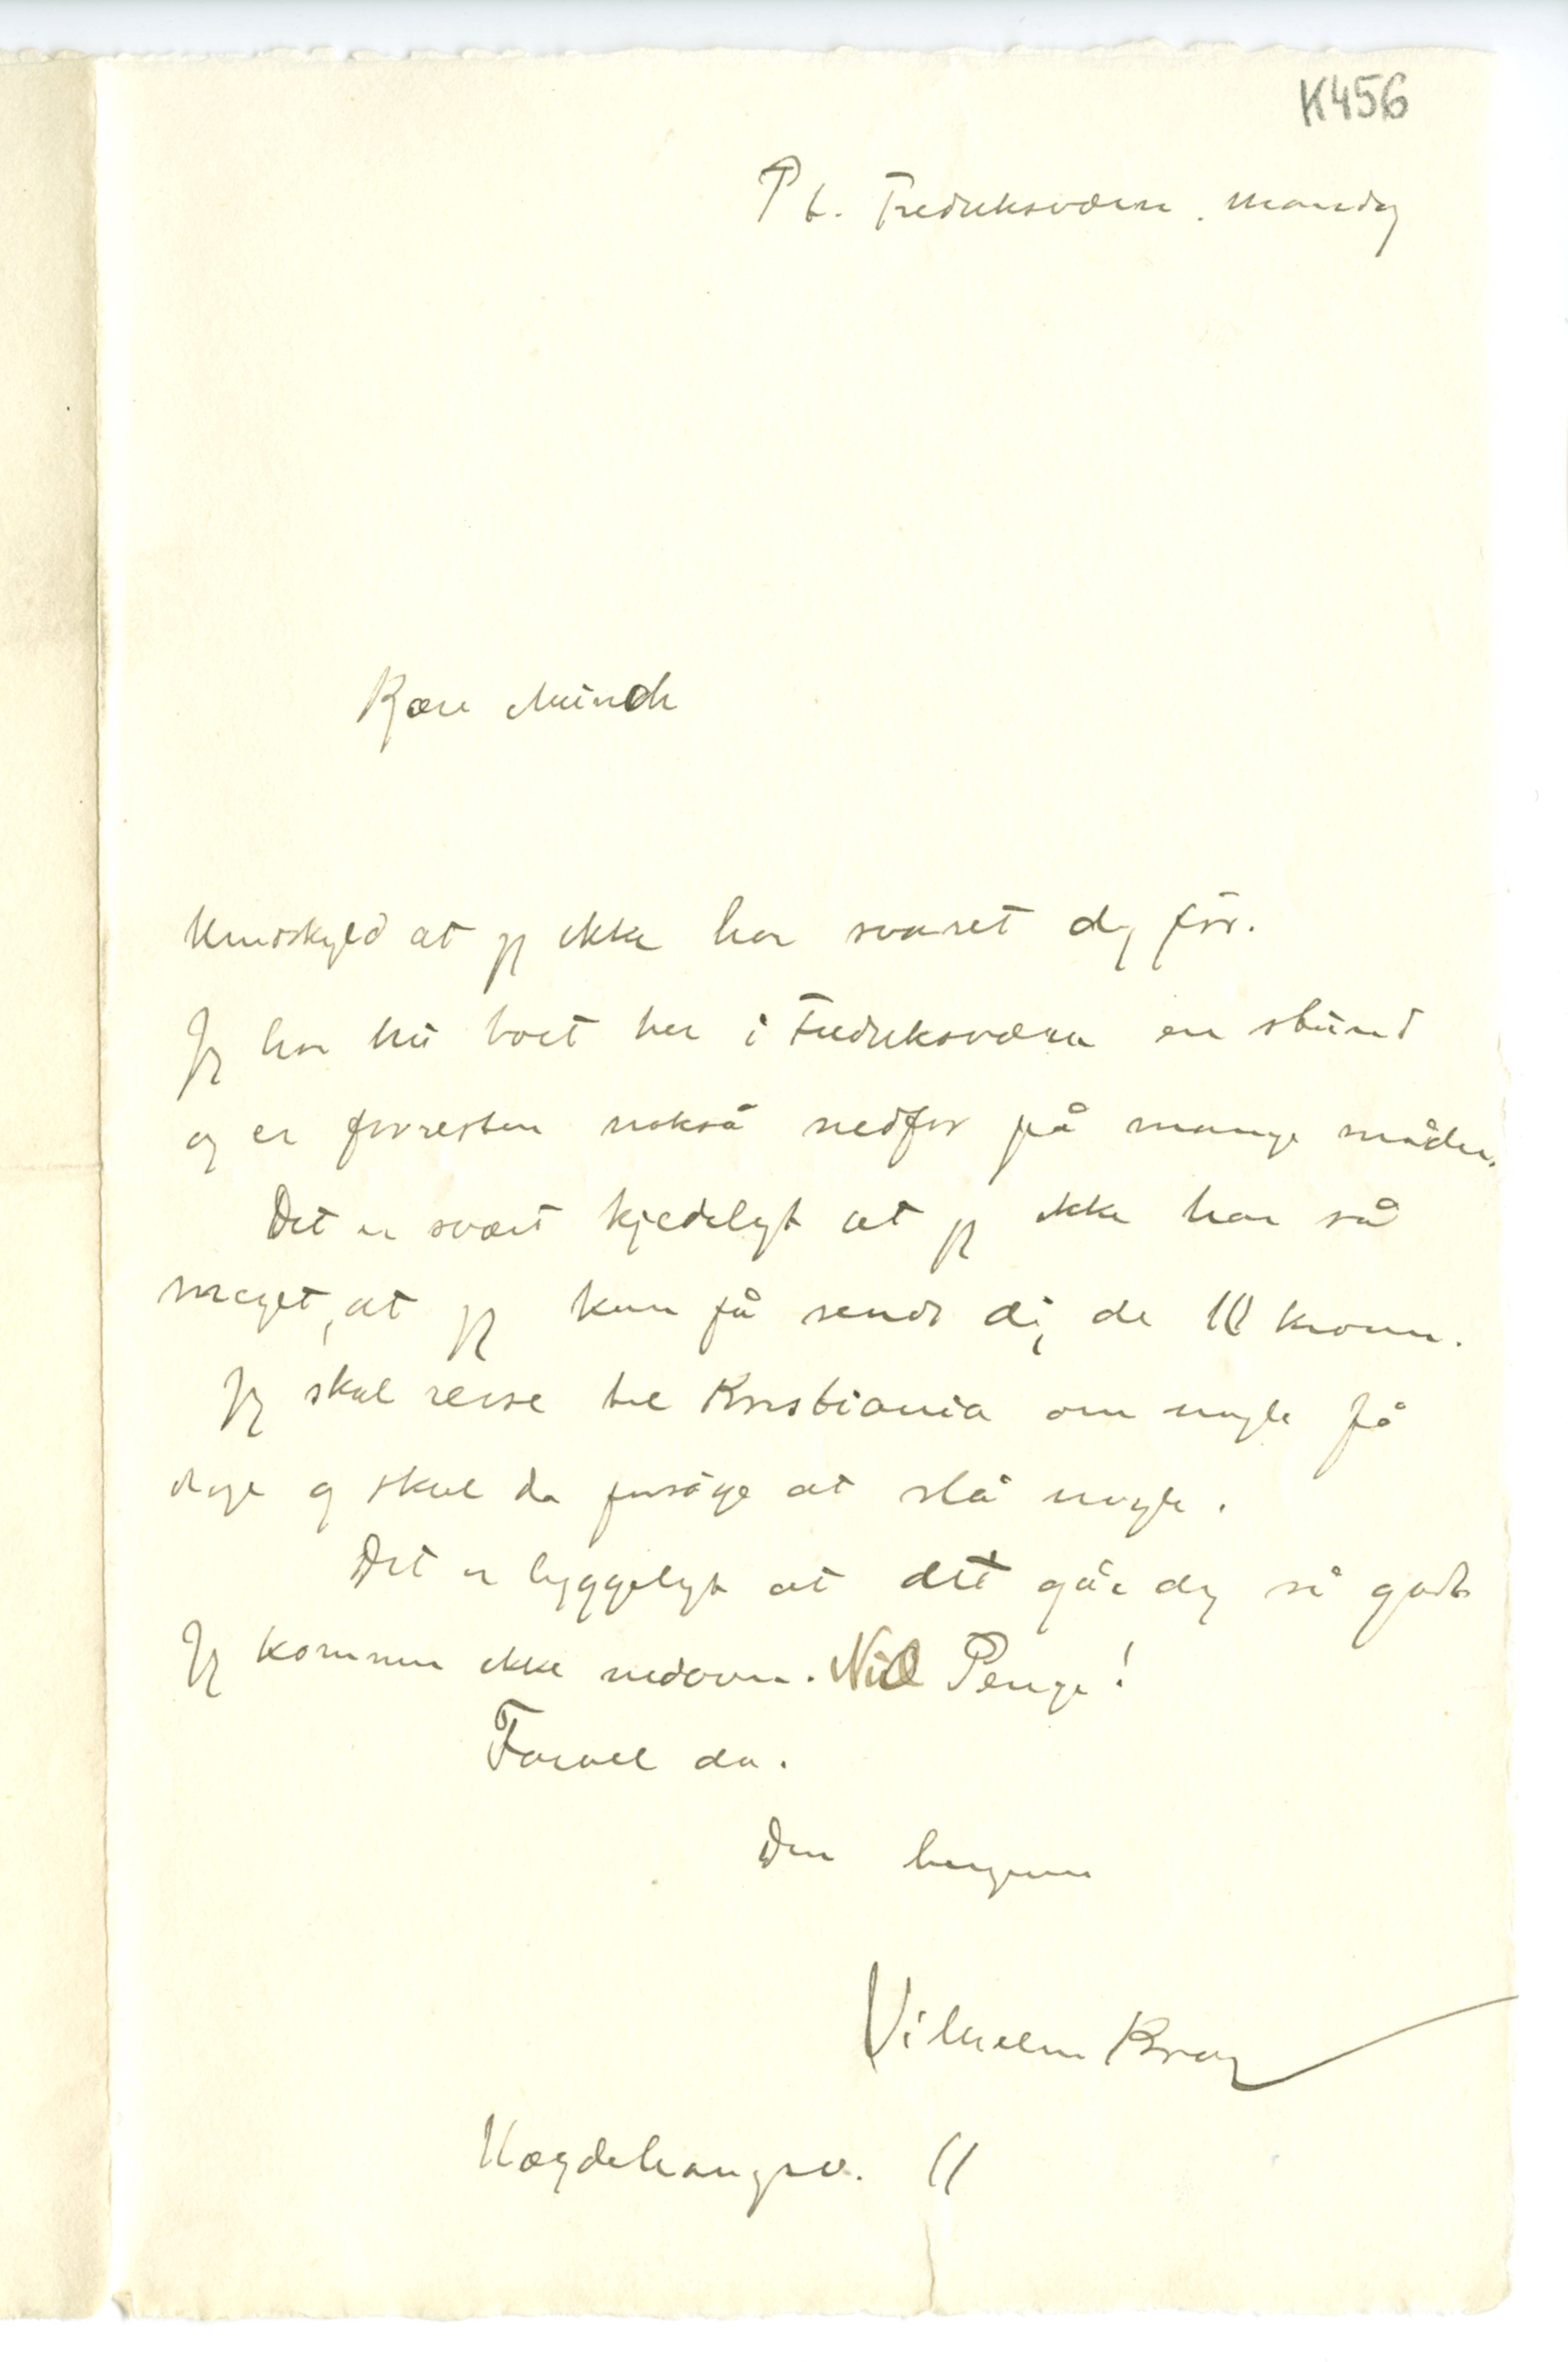 K456
Pt. Fredriksværn. Mandag
Kjære Munch
Undskyld at jeg ikke har svaret dig før.
Jeg har nu boet her i Fredriksværn en stund
og er forresten nokså nedfor på mange måder.
Det er svært kjedeligt at jeg ikke har så
meget, at jeg kan få sendt dig de 10 kroner.
Jeg skal reise til Kristiania om nogle få
dage og skal da forsøge at slå nogle.
Det er hyggeligt at det går dig så godt
Jeg kommer ikke nedover. Nix Penge!
Farvel da.
Din hengivne
Vilhelm Krag
Hægdehaugsv. 11